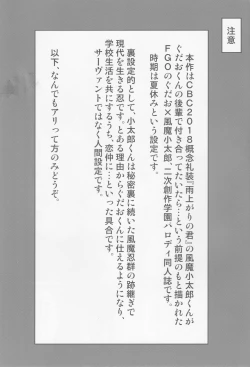 注意
本作はCBC2018概念礼装『雨上がりの君』の風魔小太郎くんが
ぐだおくんの後輩で付き合ってたら…という前提のもと描かれた
FGOのぐだお×風魔小太郎、二次創作学園パロディ同人誌です。
時期は夏休みという設定です。
裏設定的として、小太郎くんは秘密裏に続いている風魔忍群の跡継ぎで
現代を生きる忍です。とある理由からぐだおくんに仕えるようになり、
学校生活を共にするうち、恋仲に…といった具合です。
サーヴァントではなく人間設定です。
以下、なんでもアリって方のみどうぞ。